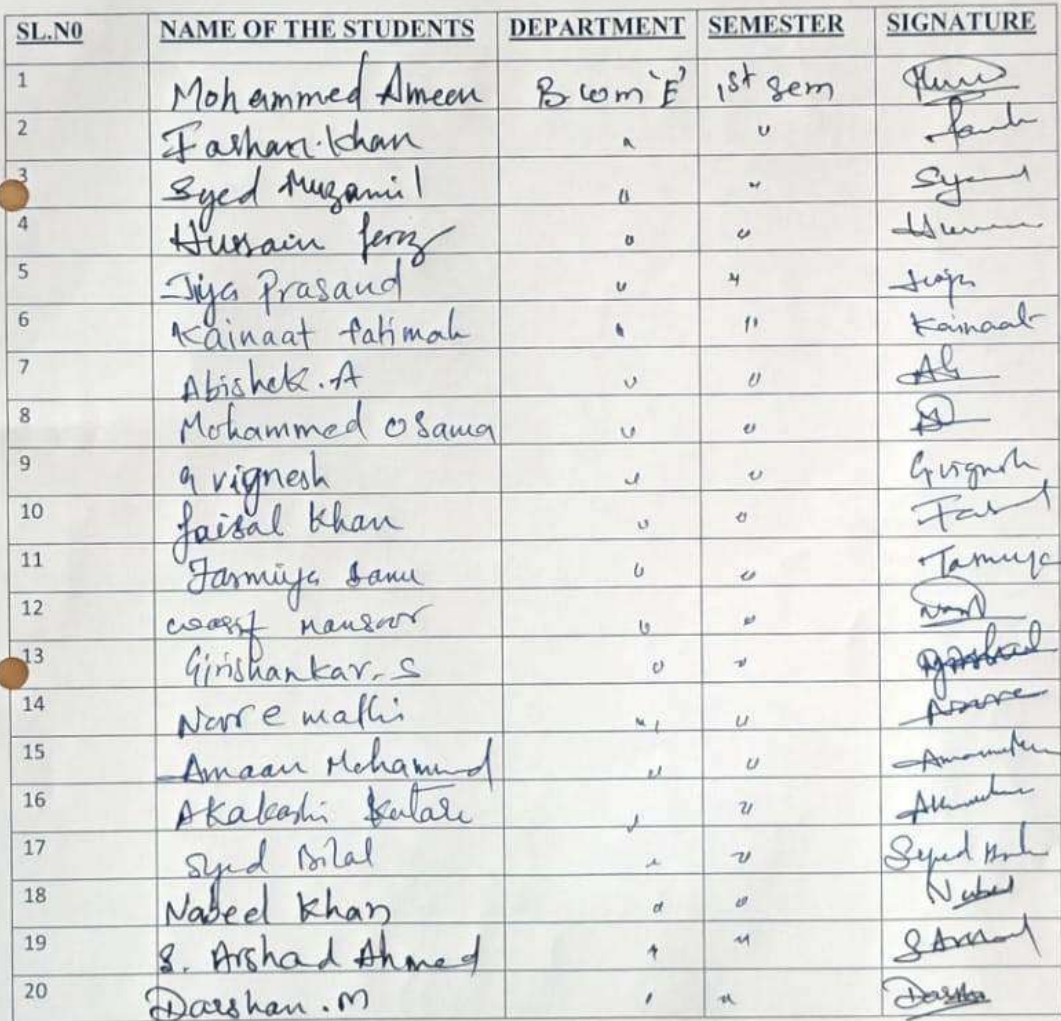 SL.N0 NAME OF THE STUDENTS DEPARTMENT SEMESTER SIGNATURE
1 Mohammed Ameen B com 'E' 1st Sem
2 Farhan Khan " "
3 Syed Muzamil " " Syed
4 Hussain feroz " "
5 Jiya Prasaud " "
6 Kainaat fatimah " " Kainaat
7 Abishek.A " " Ab
8 Mohammed Osama " "
9 G vignesh " " G vignesh
10 faisal Khan " "
11 Tasmiya banu " "
12 mansoor " "
13 Girishankar.S " "
14 Noor e " "
15 Amaan Mohammed " "
16 " "
17 Syed Bilal " " Syed
18 Nabeel Khan " " Nabeel
19 S. Arshad Ahmed " "
20 Darshan.M " " Darshan